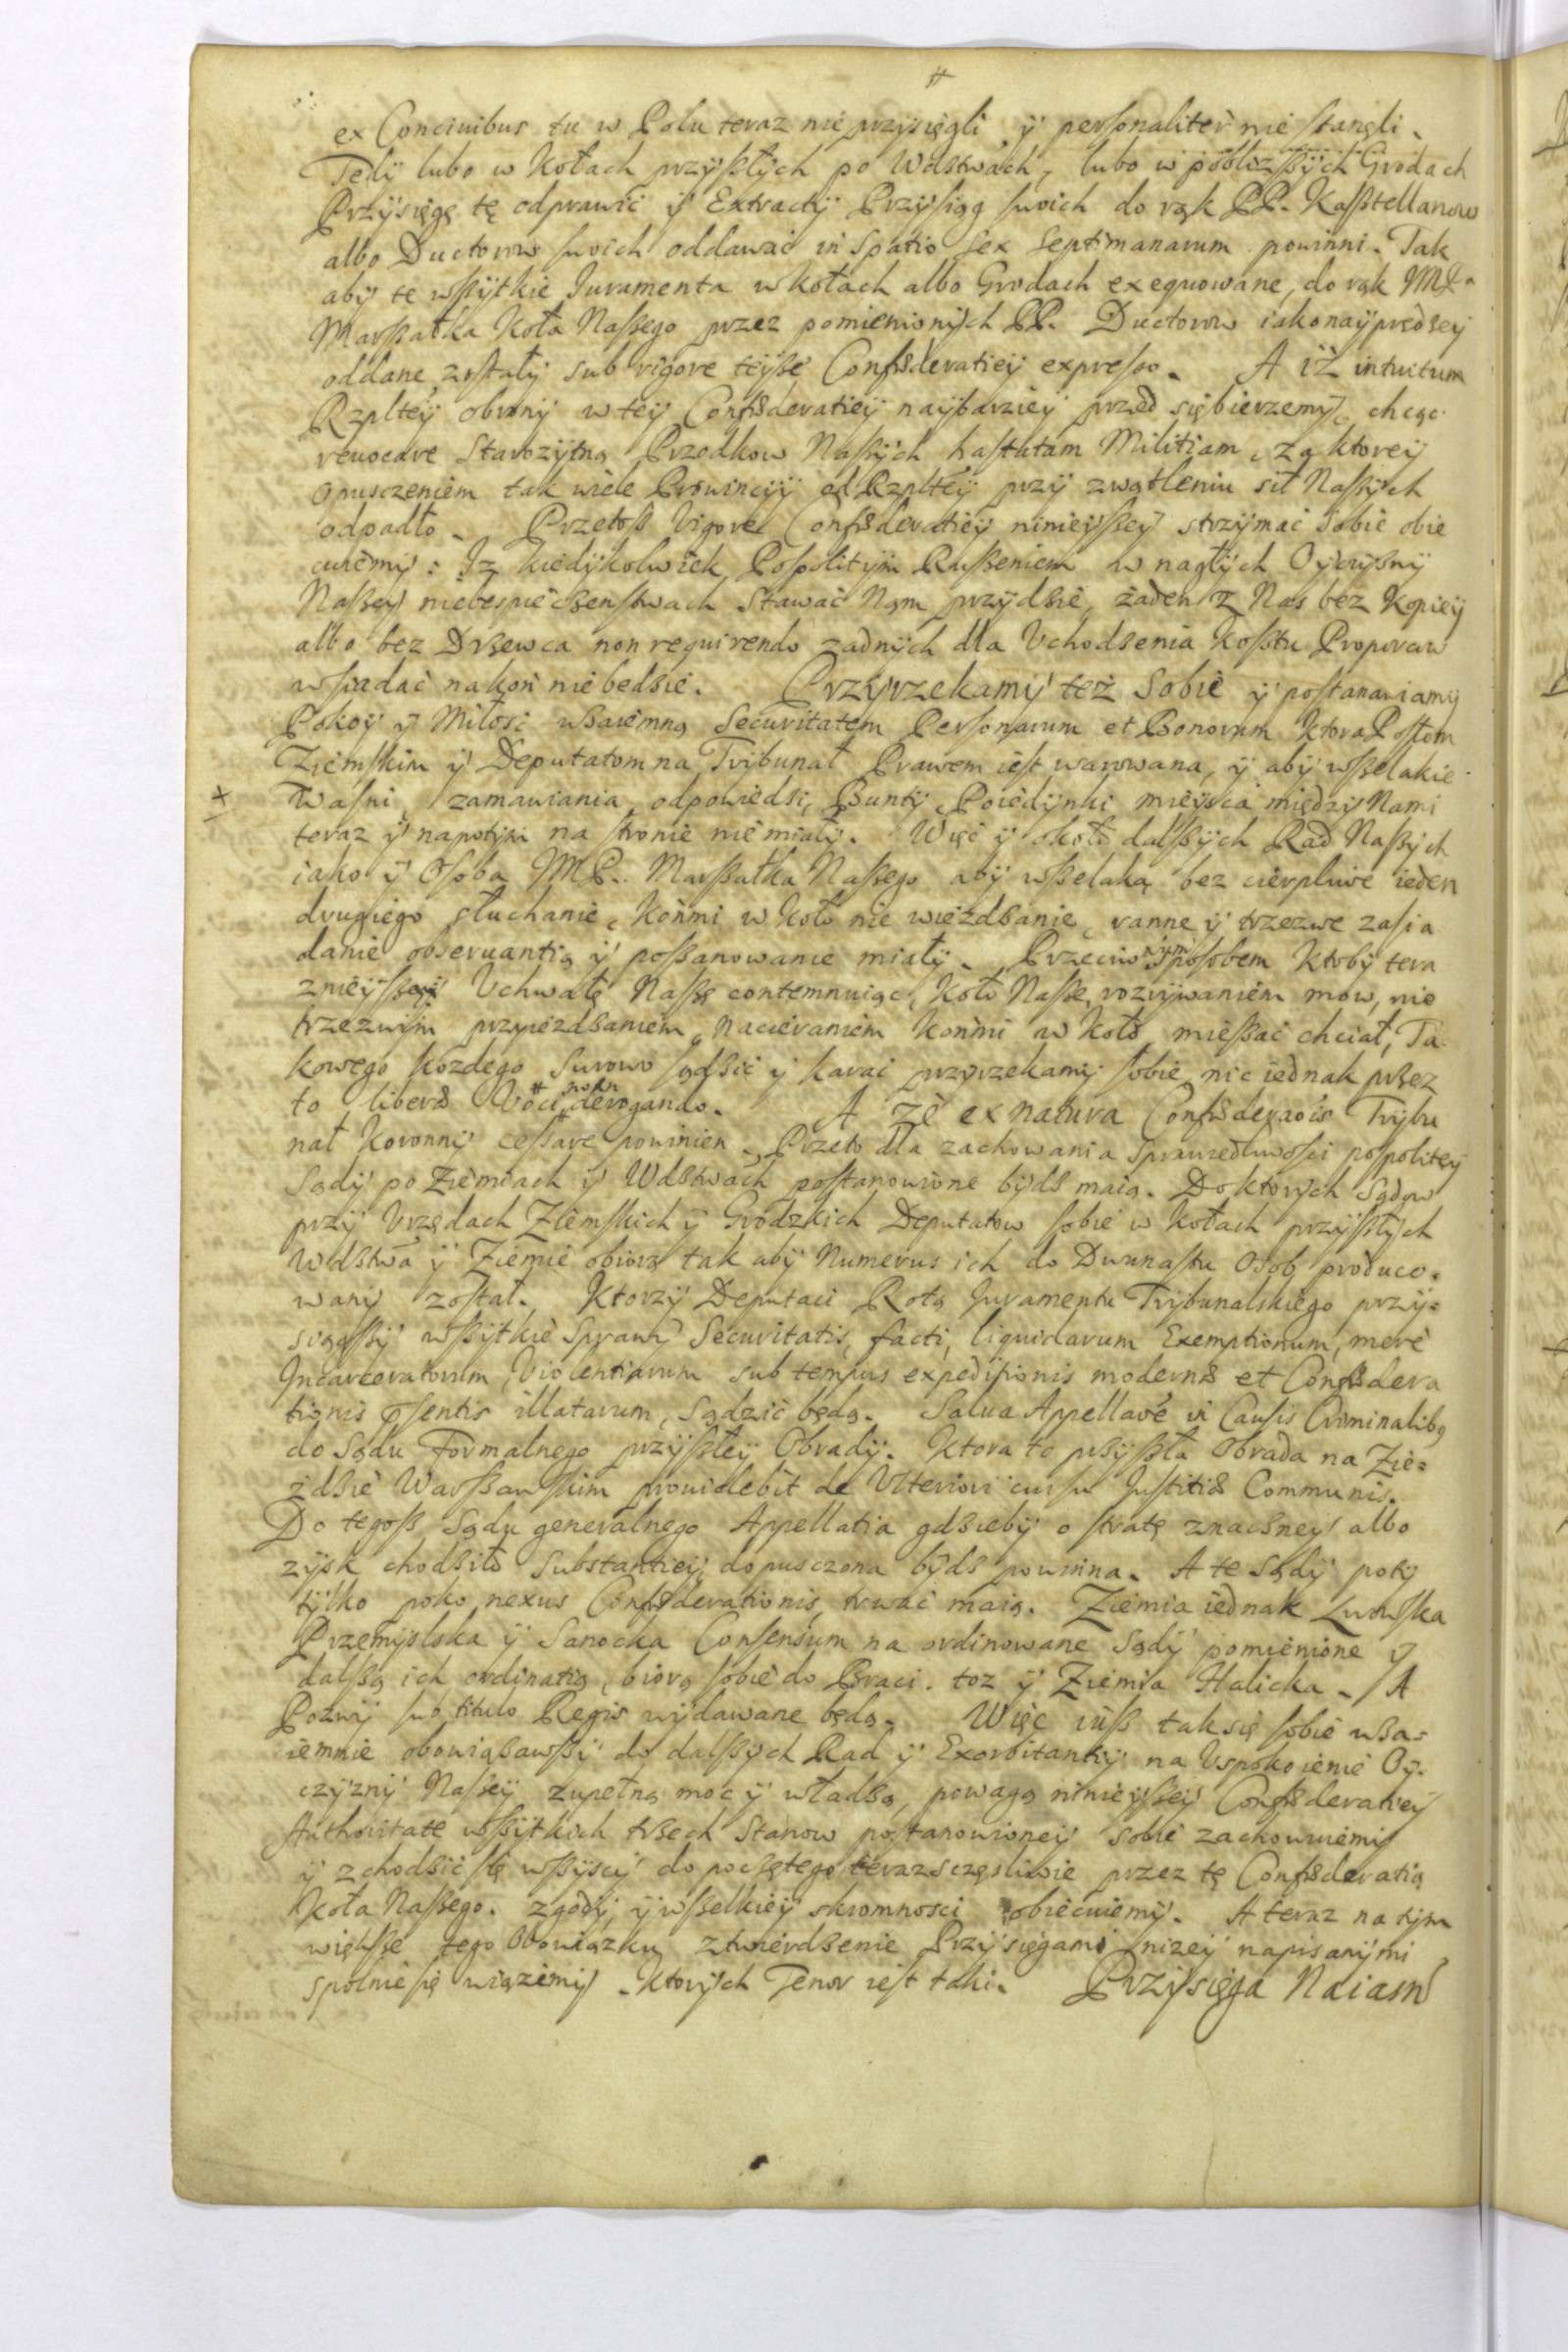 #
ex Concivibus tu w Polu teraz nie przysięgli y personaliter nie stanęli.
Tedy lubo w Kołach przyszłych po Wdstwach, lubo w poblizszych Grodach
Przysięgę tę odprawić y Extracty Przysiąg swoich do rąk PP. Kasztellanow
albo Ductorow swoich oddawać in spatio sex septimanarum powinni. Tak
aby te wszytkie Juramenta w kołach albo Grodach exequowane, do rąk MP.
Marszałka Koła Naszego przez pomienionych PP. Ductorow iako nayprędzey
oddane zostały sub rigore teyże Confæderatiey expresso. A iż intuitum
Rzpltey obrony w tey Confæderatiey naybarziey przed się bierzemy, chcąc
revocare Starozytną Przodkow Naszych hastatam Militiam, zą ktorey
opusczeniem tak wiele Prowincyi od Rzpltey przy zwątleniu sił Naszych
odpadło. Przetosz Vigore Confæderatiey ninieyszey strzymać sobie obie
cuiemy: Iz kiedykolwiek Pospolitym Ruszeniem w nagłych Oyczyzny
Naszey niebespieczenstwach stawać Nąm przydzie, żaden z Nas bez Kopiey
albo bez Drzewca non requirendo zadnych dla Vchodzenia kosztu Proporcow
wsiadać na koń nie będzie. Przyrzekamy też sobie y postanawiamy
Pokoy y Miłość wzaiemną Securitatem Personarum et Bonorum ktora Posłom
Ziemskim y Deputatom na Trybunał Prawem iest warowana, y aby wszelakie
+ Wasni, zamawiania, odpowiedzi, Bunty, Poiedynki mieysca między Nami
teraz y napotym na stronie nie miały. Więc y około dalszych Rad Naszych
iako y Osoba MP. Marszałka Naszego aby wszelaką bez cierpliwe ieden
drugiego słuchanie, Końmi w Koło nie wieżdzanie, ranne y trzezwe zasia
danie observantią y poszanowanie miały. Przeciwnym sposobem Ktoby tera
znieyszey Vchwałę Naszę contemnuiąc, Koło Nasze, rozrywaniem mow, nie
trzezwim przyiezdzaniem, nacieraniem końmi w Koło mieszać chciał, Ta
kowego kozdego surowo sądzić y karać przyrzekamy sobie, nic iednak przez
to liberæ Voci # non derogando. A że ex natura Confæderaõis Trybu
nał Koronny cessare powinien. Przeto dla zachowania sprawiedliwości pospolitey
Sądy po Ziemiach y Wdstwach postanowione bydz maią. Do ktorych Sądow
przy Vrzędach Ziemskich y Grodzkich Deputatow sobie w Kołach przyszłych
Wdstwa y Ziemie obiorą tak aby Numerus ich do Dwunastu Osob produco=
wany został. Ktorzy Deputaci Rotą Juramentu Trybunalskiego przy=
siągszy wszytkie Sprawy Securitatis, facti, liquidarum Exemptionum, mere
Incarceratorum, Violentiarum sub tempus expeditionis modernæ et Confædera
tionis p̃sentis illatarum, Sądzić będą. Salua Appellaõe in Causis Criminalibq
do Sądu Formalnego przyszłey Obrady. Ktora to przyszła Obrada na Zie=
żdzie Warszawskim prouidebit de Vlteriori cursu Justitiæ Communis.
Do tegosz Sądu generalnego Appellatia gdzieby o stratę znaczney albo
zysk chodziło Substantiey dopusczona bydz powinna. A te Sądy poty
tylko poko nexus Confæderationis, trwać maią. Ziemia iednak Lwowska
Przemyslska y Sanocka Consensum na ordinowane Sądy pomienione y
dalszą ich ordinatią, biorą sobie do Braci. toz y Ziemia Halicka. / A
Pozwy sub titulo Regis wydawane będą. Więc iusz tak się sobie wza=
iemnie obowiązawszy do dalszych Rad y Exorbitantiy na Vspokoienie Oy=
czyzny Naszey zupełną moc y władzą, powagą ninieyszey Confæderatiey
Authoritate wszytkich trzech Stanow postanowioney sobie zachowuiemy
y zchodzić się wszyscy do poczętego teraz sczęsliwie przez tę Confæderatią
Koła Naszego. zgody, y wszelkiey skromnosci obiecuiemy. A teraz na tym
większe tego Obowiązku ztwierdzenie Przysięgami nizey napisanymi
spolnie się wiązemy. Ktorych Tenor iest taki. Przysięga Naiasn